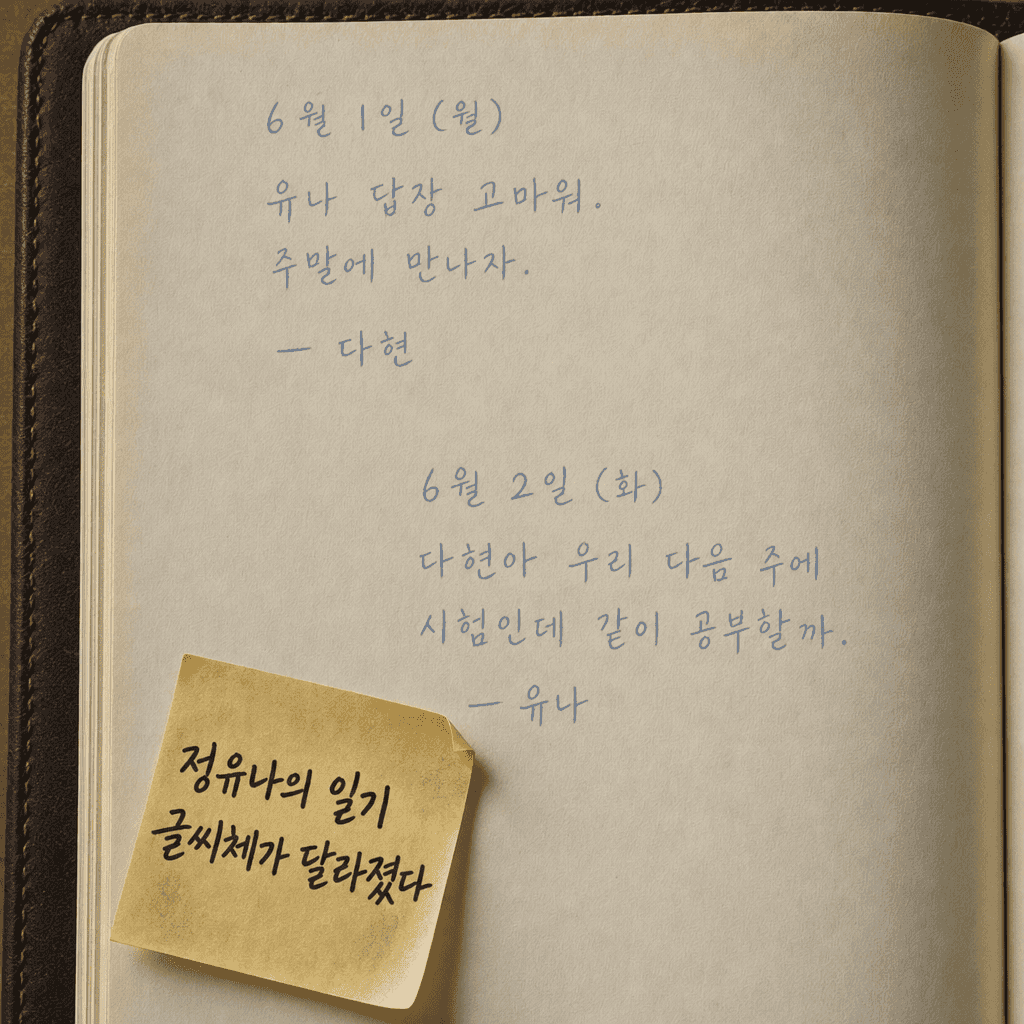 6월 1일 (월)
유나 답장 고마워.
주말에 만나자.
— 다현
6월 2일 (화)
다현아 우리 다음 주에
시험인데 같이 공부할까.
— 유나
정유나의 일기
글씨체가 달라졌다